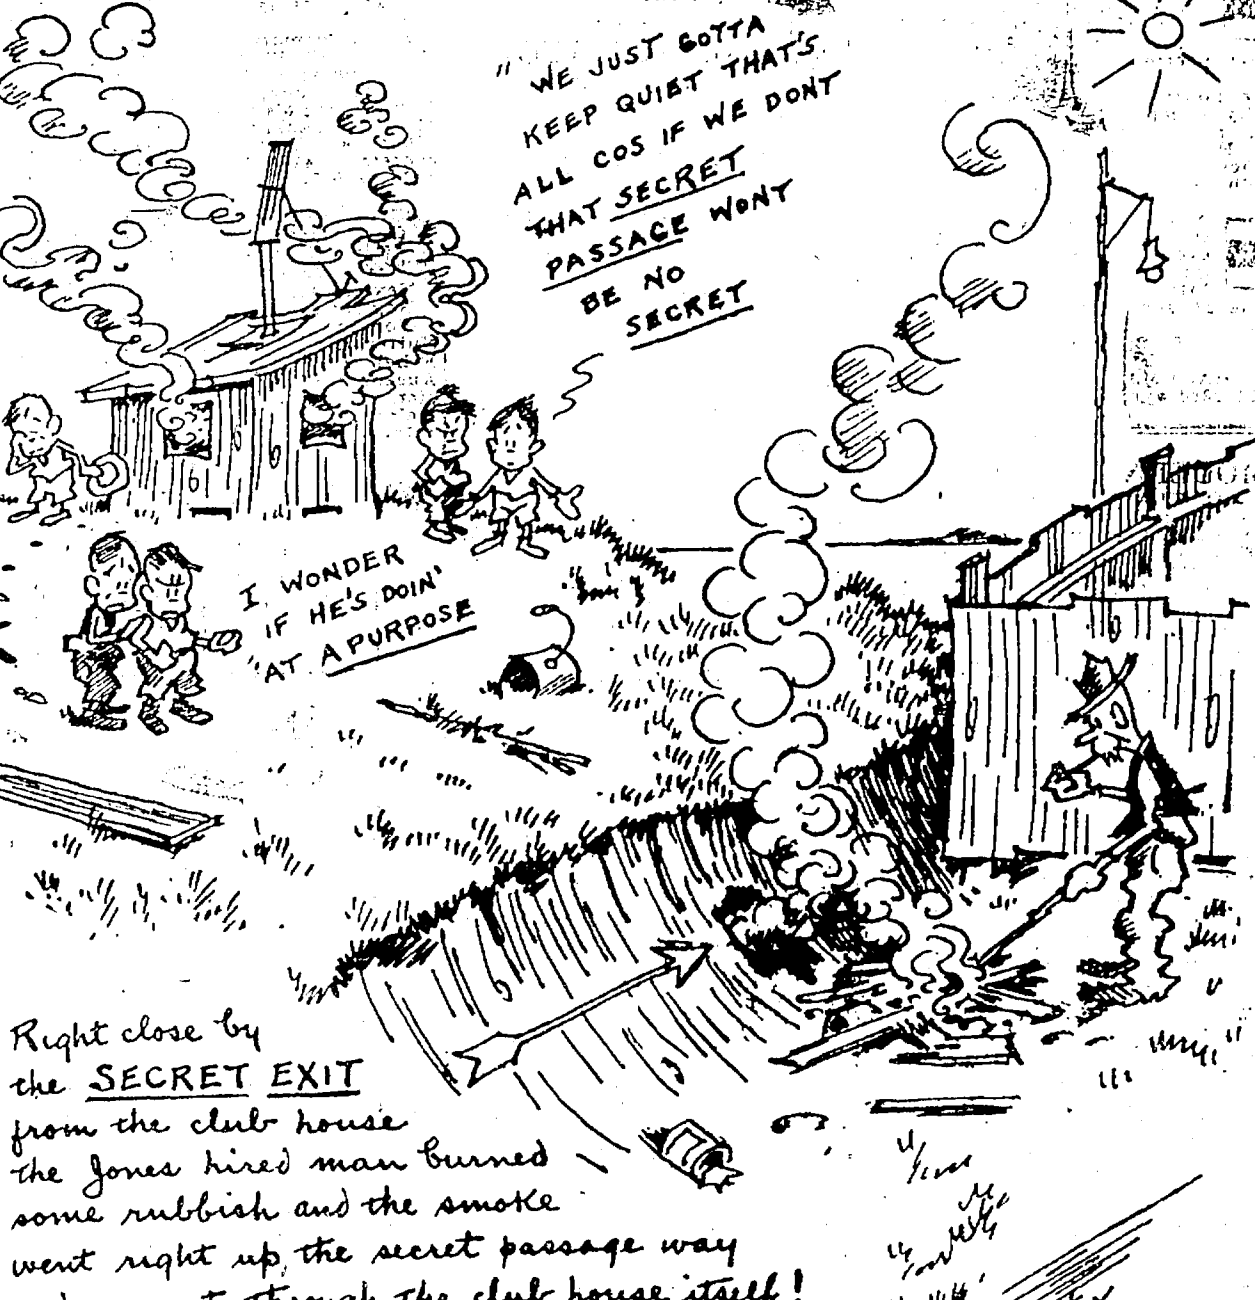 " WE JUST GOTTA
KEEP QUIET THAT'S
ALL COS IF WE DONT
THAT SECRET
PASSAGE WONT
BE NO
SECRET
I WONDER
IF HE'S DOIN'
"AT A PURPOSE
Right close by
the SECRET EXIT
from the club house
the Jones hired man burned
some rubbish and the smoke
went right up, the secret passage way
through the club house itself!